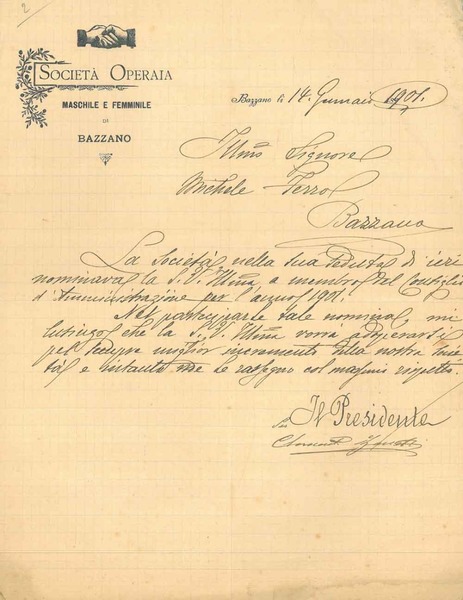 2
SOCIETÀ OPERAIA
MASCHILE E FEMMINILE
DI
BAZZANO
Bazzano li 14 Gennaio 1901.
Illmo Signore
Michele Ferro
Bazzano
La Società nella sua seduta di ieri
nominava la S.V. Illma, a membro del Consiglio
d'Amministrazione per l'anno 1901.
Nel parteciparle tale nomina, mi
lusingo che la S.V. Illma vorrà adoperarsi
pel sempre miglior incremento della nostra Socie
tà e intanto me le rassegno col massimo rispetto.
Il Presidente